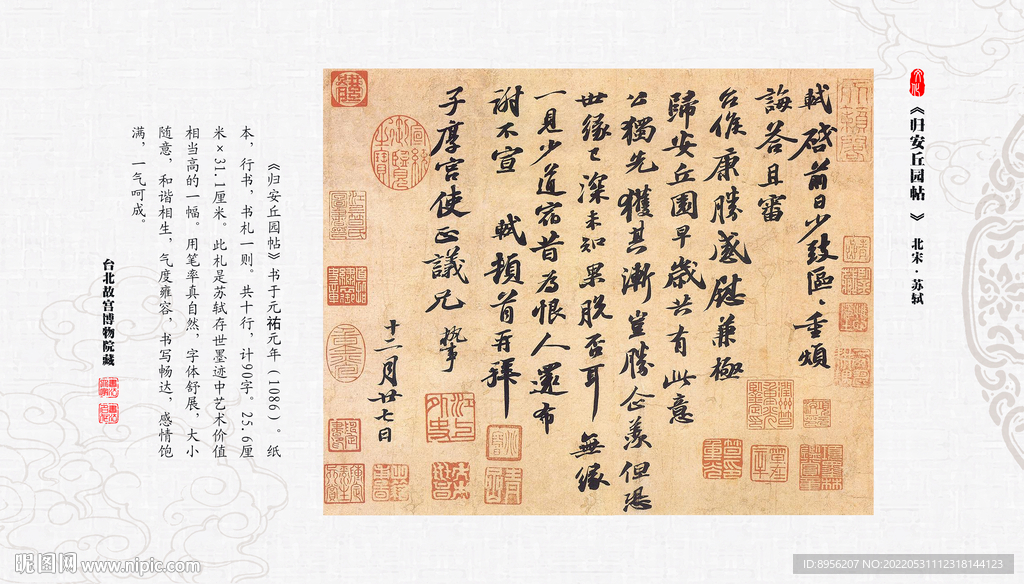 文化
《归安丘园帖》
北宋·苏轼
軾啓前日少致區〻重煩
誨答且審
台候康勝感慰兼極
歸安丘園早歲共有此意
公獨先獲其漸豈勝企羨但恐
世緣已深未知果脫否耳無緣
一見少道宿昔為恨人還布
謝不宣 軾頓首再拜
子厚宮使正議兄 執事
十二月廿七日
《归安丘园帖》书于元祐元年（1086）。纸
本，行书，书札一则。共十行，计90字。25.6厘
米×31.1厘米。此札是苏轼存世墨迹中艺术价值
相当高的一幅。用笔率真自然，字体舒展，大小
随意，和谐相生，气度雍容，书写畅达，感情饱
满，一气呵成。
台北故宫博物院藏
昵图网 www.nipic.com
ID:8956207 NO:20220531112318144123